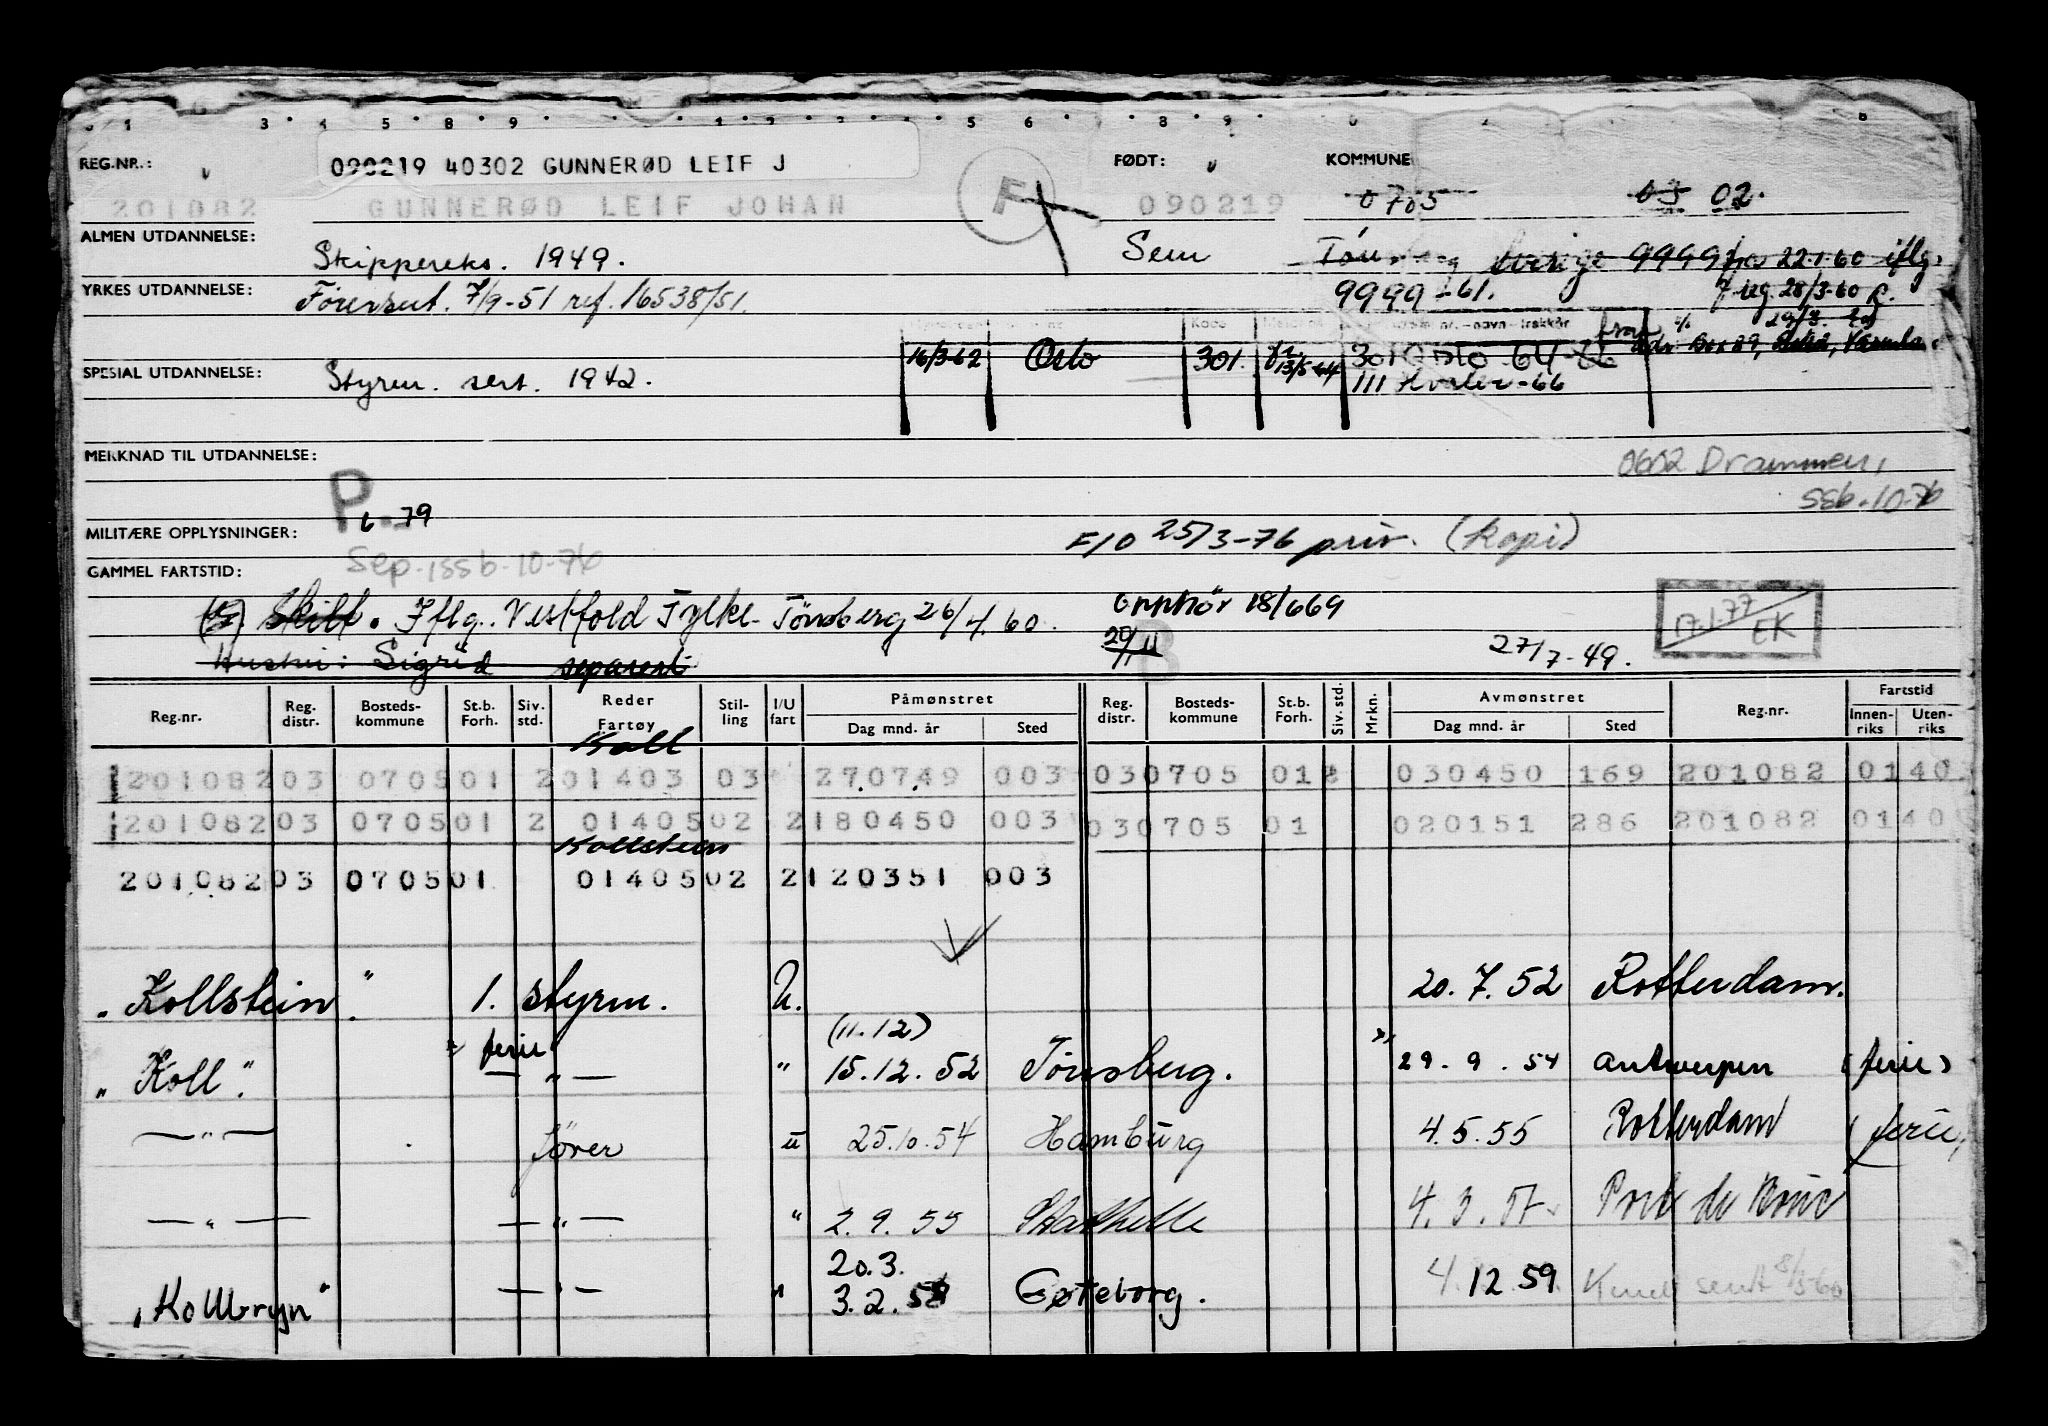 REG.NR.: 090219 40302 GUNNERØD LEIF J F FØDT: KOMMUNE
201082 GUNNERØD LEIF JOHAN 090219 0705 03 02.
ALMEN UTDANNELSE: Skippereks. 1949. Sem Tønsberg Sverige 9999 fra 22-1-60 iflg.
YRKES UTDANNELSE: Førersert. 7/9-51 ref. 16538/51. 9999-61. 28/3-60
16/3-62 Oslo 301. 13/5-64 301 Oslo 64
SPESIAL UTDANNELSE: Styrm. sert. 1942. 111 Hvaler-66
MERKNAD TIL UTDANNELSE: 0602 Drammen,
P 6-79 ssb-10-76
MILITÆRE OPPLYSNINGER: F/O 25/3-76 priv. (kopi)
Sep. issb-10-76
GAMMEL FARTSTID:
Skilt. Iflg. Vestfold Fylke-Tønsberg 26/4.60. Opphør 18/669 17.1.77 EK
Hustru: Sigrid separert 20/11 B 27/7-49.
Reg.nr. Reg. distr. Bosteds-kommune St.b. Forh. Siv. std. Reder Fartøy Stil-ling I/U fart Påmønstret Dag mnd. år Sted Reg. distr. Bosteds-kommune St.b. Forh. Siv. std. Mrkn. Avmønstret Dag mnd. år Sted Reg.nr. Fartstid Innen-riks Uten-riks
Koll
201082 03 0705 01 2 01403 03 270749 003 03 0705 01 2 030450 169 201082 0140
201082 03 0705 01 2 01405 02 2 180450 003 03 0705 01 020151 286 201082 0140
Kollstein
201082 03 0705 01 01405 02 2 120351 003
"Kollstein" 1. styrm. U. 20.7.52 Rotterdam.
(11.12)
"Koll". ferie — " — " 15.12.52 Tønsberg. 29.9.54 Antwerpen (ferie)
— " — fører u 25.10.54 Hamburg 4.5.55 Rotterdam (ferie)
— " — — " — " 2.9.55 Stathelle 4.3.57 Port de Bouc
20.3.
"Kollbryn" — " — " 3.2.58 Gøteborg. 4.12.59 sendt 8/3-60